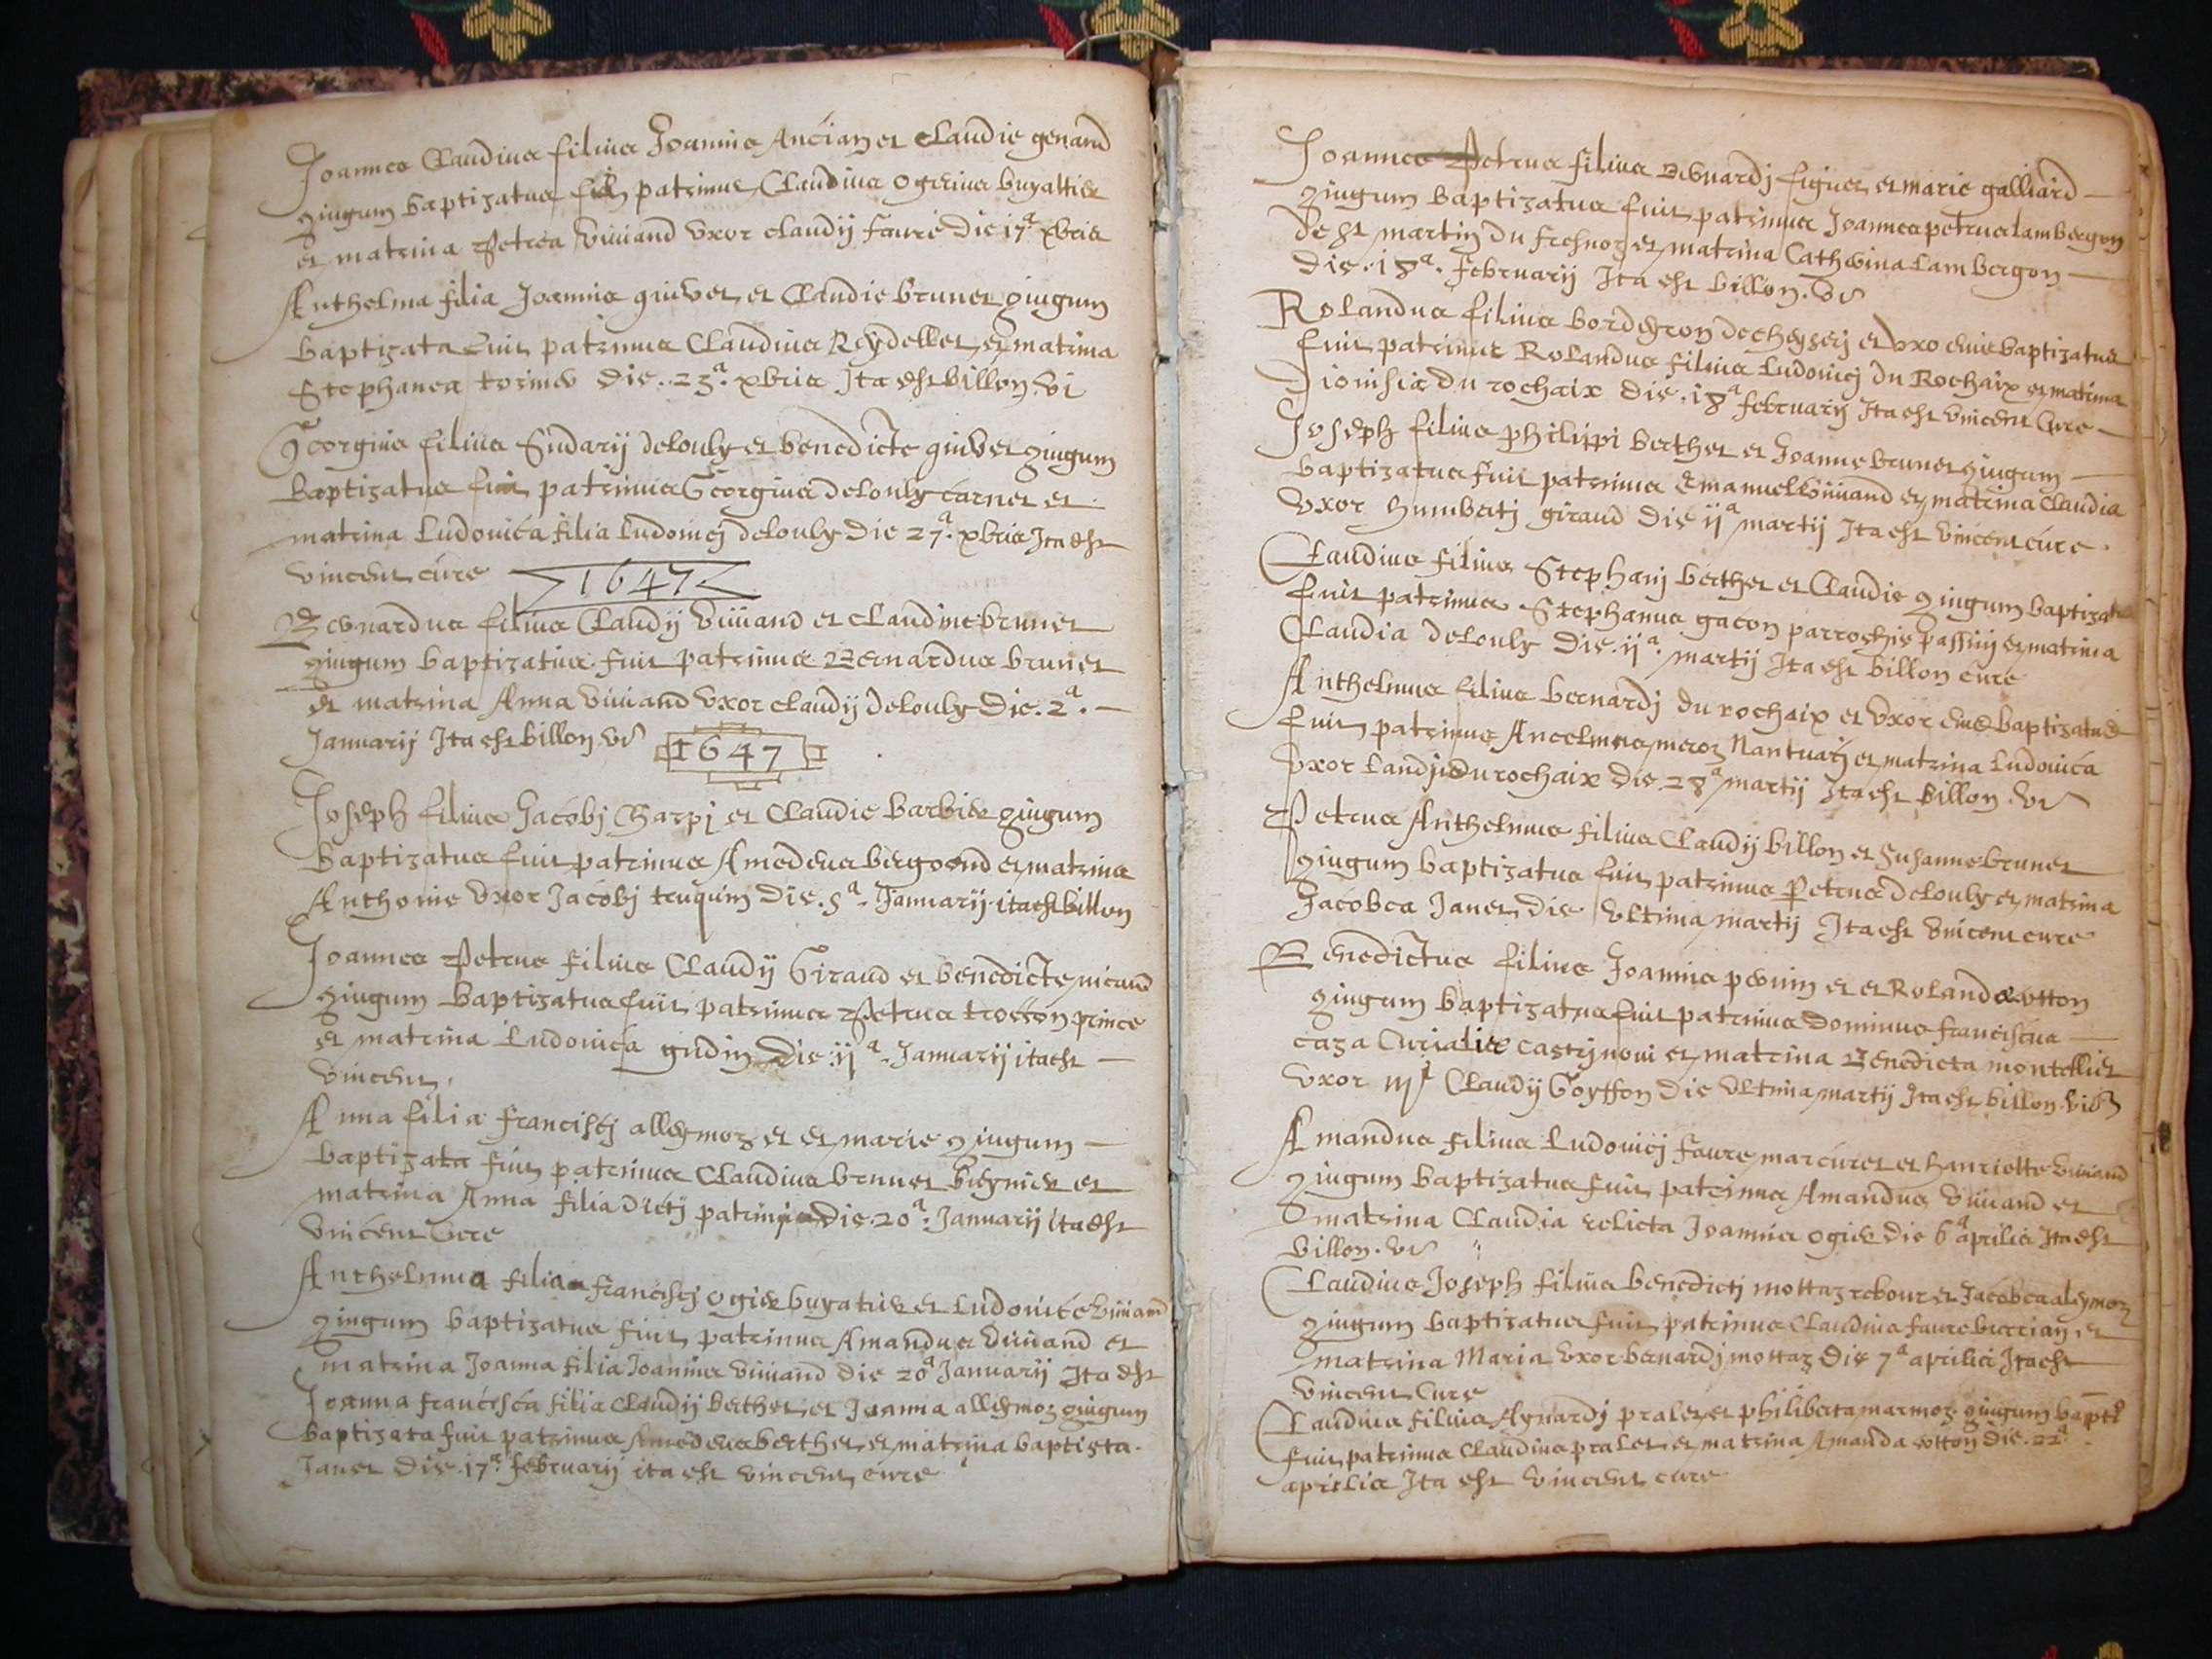 Joannes Claudius filius Joannis Ancian et Claudie genand
giugum baptizatus fuit patrinus Claudius Ogerius buyatier
et matrina Petrea Viviand Uxor claudij faure die 17ª xbris
Anthelma filia Joannis quivet et Claudie brunet giugum
baptizata fuit patrinus Claudius Reydellet et matrina
Stephanea die . 23ª. xbris Ita est billon vi
Georgius filius Sudarij delouly et benedicte quivet giugum
baptizatus fuit patrinus Georgius delouly carner et
matrina Ludovica filia Ludovicj delouly die 27ª. xbris Ita est
vincent cure
1647
Bernardus filius Claudij Viviand et Claudine brunet
giugum baptizatus fuit patrinus Bernardus brunet
et matrina Anna viviand Uxor claudij delouly Die . 2ª. —
Januarij Ita est billon vi
1647
Joseph filius Jacobj Charpj et Claudie barbier giugum
baptizatus fuit patrinus Amedeus bergoend et matrina
Anthonie Uxor Jacobj truquin die . 5ª. Januarij ita est billon
Joannes Petrus filius Claudij Giraud et benedicte nicaud
giugum baptizatus fuit patrinus Petrus trocon prince
et matrina Ludovica gudin die ijª. Januarij ita est —
vincent.
Anna filia franciscj alleymoz et et marie giugum —
baptizata fuit patrinus Claudius brunet et
matrina Anna filia dictj patrinj die . 20ª. Januarij ita est
vincent Cure
Anthelmus filius francisci ogier buyatier et Ludovice viviand
giugum baptizatus fuit patrinus Amandus Viviand et
matrina Joanna filia Joannis Viviand die 20ª Januarij Ita est
Joanna francisca filia Claudij berthet et Joanna alleymoz giugum
baptizata fuit patrinus Amedeus berthet et matrina baptista.
Janet die . 17ª. februarij ita est vincent cure
Joannes Petrus filius Bernardj figuet et marie galliard —
giugum baptizatus fuit patrinus Joannes petrus lambergon
de st martin du fresnoz et matrina Catherina Lambergon —
die . 18ª. februarij Ita est billon . vi
Rolandus filius bordegron de cheyserj et Uxo eius baptizatus
fuit patrinus Rolandus filius Ludovicj du Rochaix et matrina
Dionisia du rochaix die . 18ª februarij Ita est vincent Cure —
Joseph filius philippi berthet et Joanne brunet giugum —
baptizatus fuit patrinus Emanuel Viviand et matrina Claudia
Uxor humbertj giraud die ijª martij Ita est Vincent cure .
Claudius filius Stephanj berthet et Claudie giugum baptizatus
fuit patrinus Stephanus gacon parrochie passini et matrina
Claudia delouly die . ijª. martij Ita est billon cure
Anthelmus filius bernardj du rochaix et Uxor eius baptizatus
fuit patrinus Ancelmus meroz Nantuatj et matrina Ludovica
Uxor Landji du rochaix die . 28ª martij Ita est billon . vi
Petrus Anthelmus filius Claudij billon et Susanne brunet
giugum baptizatus fuit patrinus Petrus delouly et matrina
Jacobea Janet die Ultima martij Ita est Vincent cure
Benedictus filius Joannis pernin et et Rolande cotton
giugum baptizatus fuit patrinus dominus franciscus —
caza Curialis castrj novi et matrina Benedicta montellier
Uxor Mri Claudij Goyffon die Ultima martij Ita est billon . vic
Amandus filius Ludovicj faure marcuret et hanriette viviand
giugum baptizatus fuit patrinus Amandus Viviand et
matrina Claudia relicta Joannis ogier die 6ª aprilis Ita est
billon . vi
Claudius Joseph filius benedictj mottaz rebour et Jacobea aleymoz
giugum baptizatus fuit patrinus Claudius faure burrian et
matrina Maria Uxor bernardj mottaz die 7ª aprilis Ita est —
Vincent Cure
Claudius filius Aynardj pralet et philiberta marmoz giugum bapt
fuit patrinus Claudius pralet et matrina Amanda cotton die . 22ª.
aprilis Ita est vincent cure